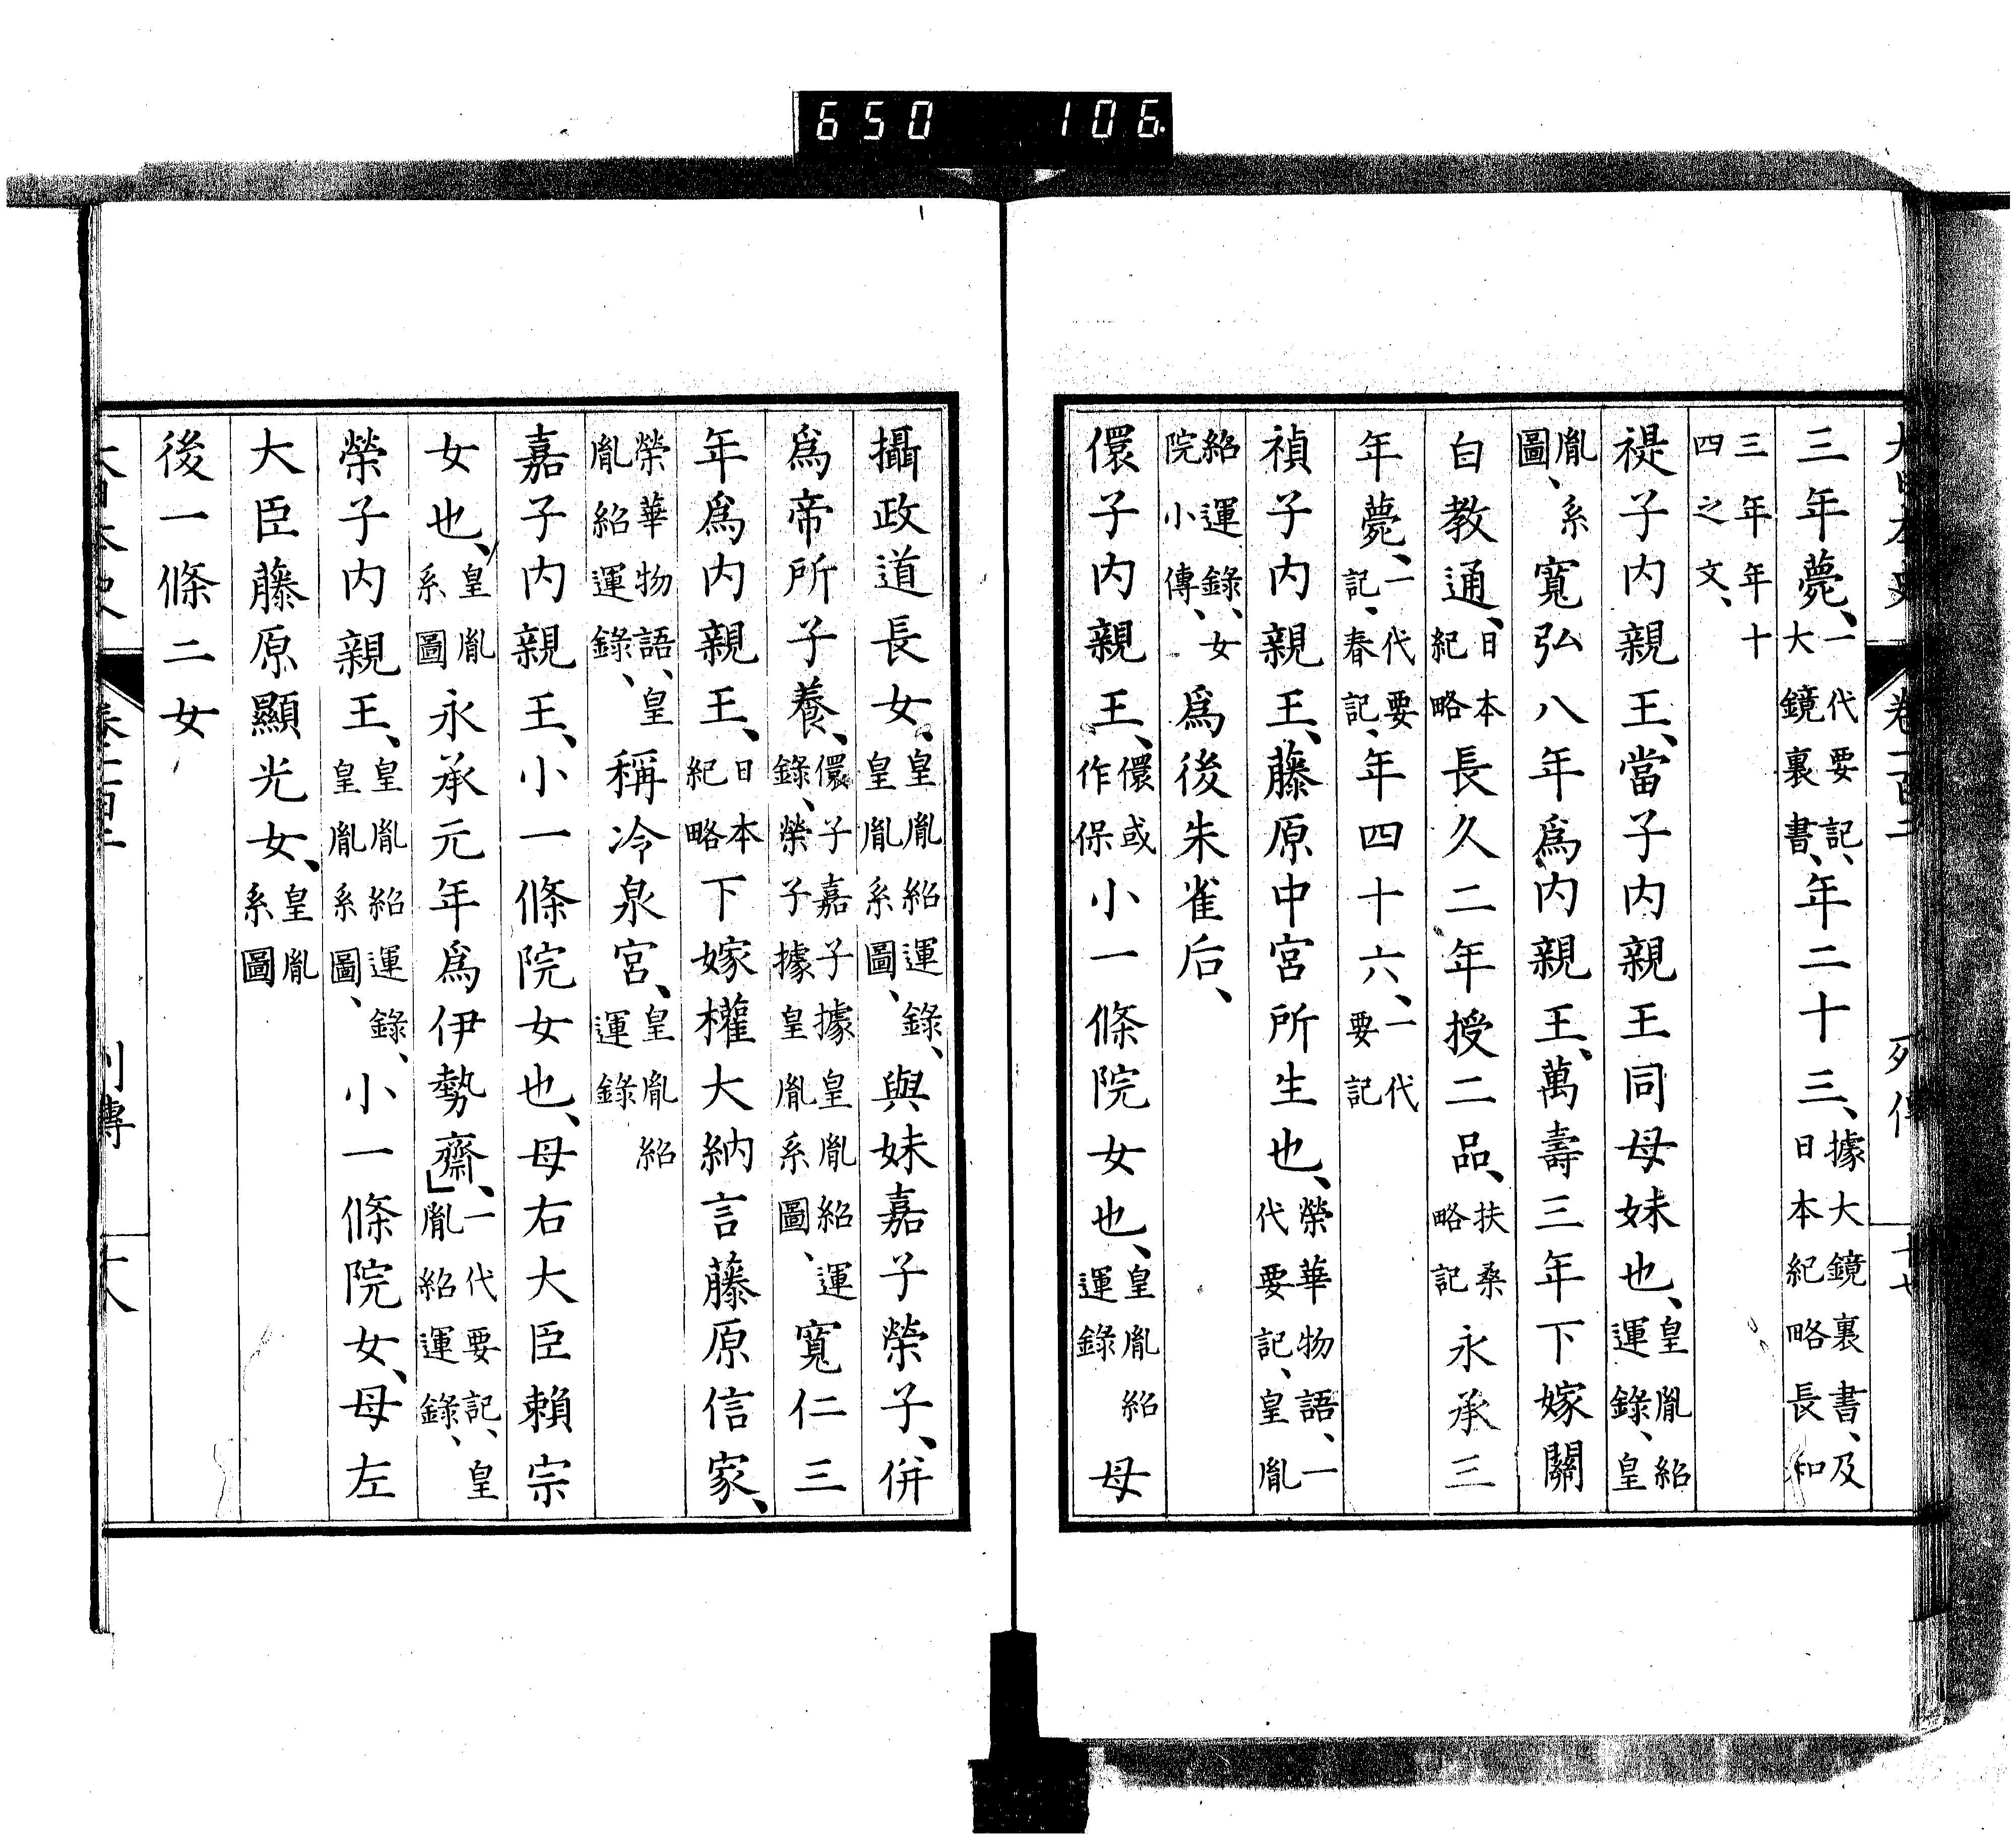 650 106
三年薨、一代要記、大鏡裏書、年二十三、據大鏡裏書、及日本紀略長和
三年年十四之文、
禔子内親王、當子内親王同母妹也、皇胤紹運錄、皇
胤系圖、寬弘八年爲内親王、萬壽三年下嫁關
白教通、日本紀略長久二年授二品、扶桑略記永承三
年薨、一代要記、春記、年四十六、一代要記
禎子内親王、藤原中宮所生也、榮華物語、一代要記、皇胤
紹運錄、女院小傳、爲後朱雀后、
儇子内親王、儇或作保小一條院女也、皇胤紹運錄母
攝政道長女、皇胤紹運錄、皇胤系圖、與妹嘉子榮子、併
爲帝所子養、儇子嘉子據皇胤紹運錄、榮子據皇胤系圖、寬仁三
年爲内親王、日本紀略下嫁權大納言藤原信家、
榮華物語、皇胤紹運錄、稱冷泉宮、皇胤紹運錄
嘉子内親王、小一條院女也、母右大臣賴宗
女也、皇胤系圖永承元年爲伊勢齋、一代要記、皇胤紹運錄、
榮子内親王、皇胤紹運錄、皇胤系圖、小一條院女、母左
大臣藤原顯光女、皇胤系圖
後一條二女